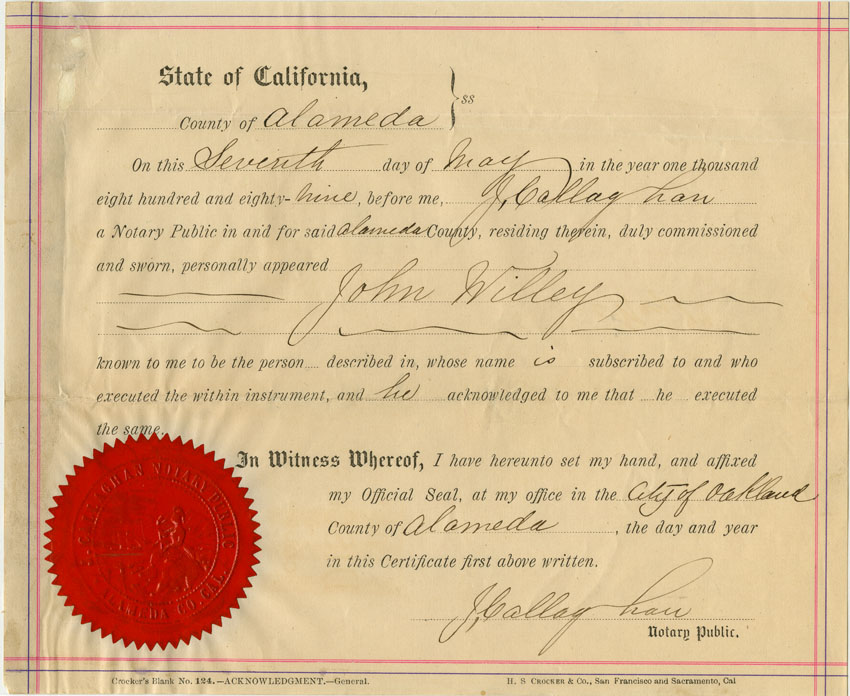 State of California,
County of Alameda } ss
On this Seventh day of May in the year one thousand
eight hundred and eighty-nine, before me, J. Callaghan
a Notary Public in and for said Alameda County, residing therein, duly commissioned
and sworn, personally appeared
John Willey
known to me to be the person described in, whose name is subscribed to and who
executed the within instrument, and he acknowledged to me that he executed
the same.
In Witness Whereof, I have hereunto set my hand, and affixed
my Official Seal, at my office in the City of Oakland
County of Alameda, the day and year
in this Certificate first above written.
J. Callaghan
Notary Public.
CALLAGHAN NOTARY PUBLIC
ALAMEDA CO. CAL.
Crocker's Blank No. 124.—ACKNOWLEDGMENT.—General.
H. S. Crocker & Co., San Francisco and Sacramento, Cal